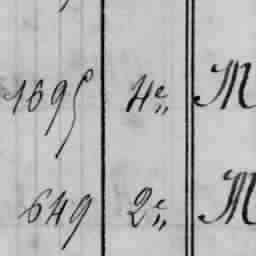 1695 4e„ M
649 2e„ M